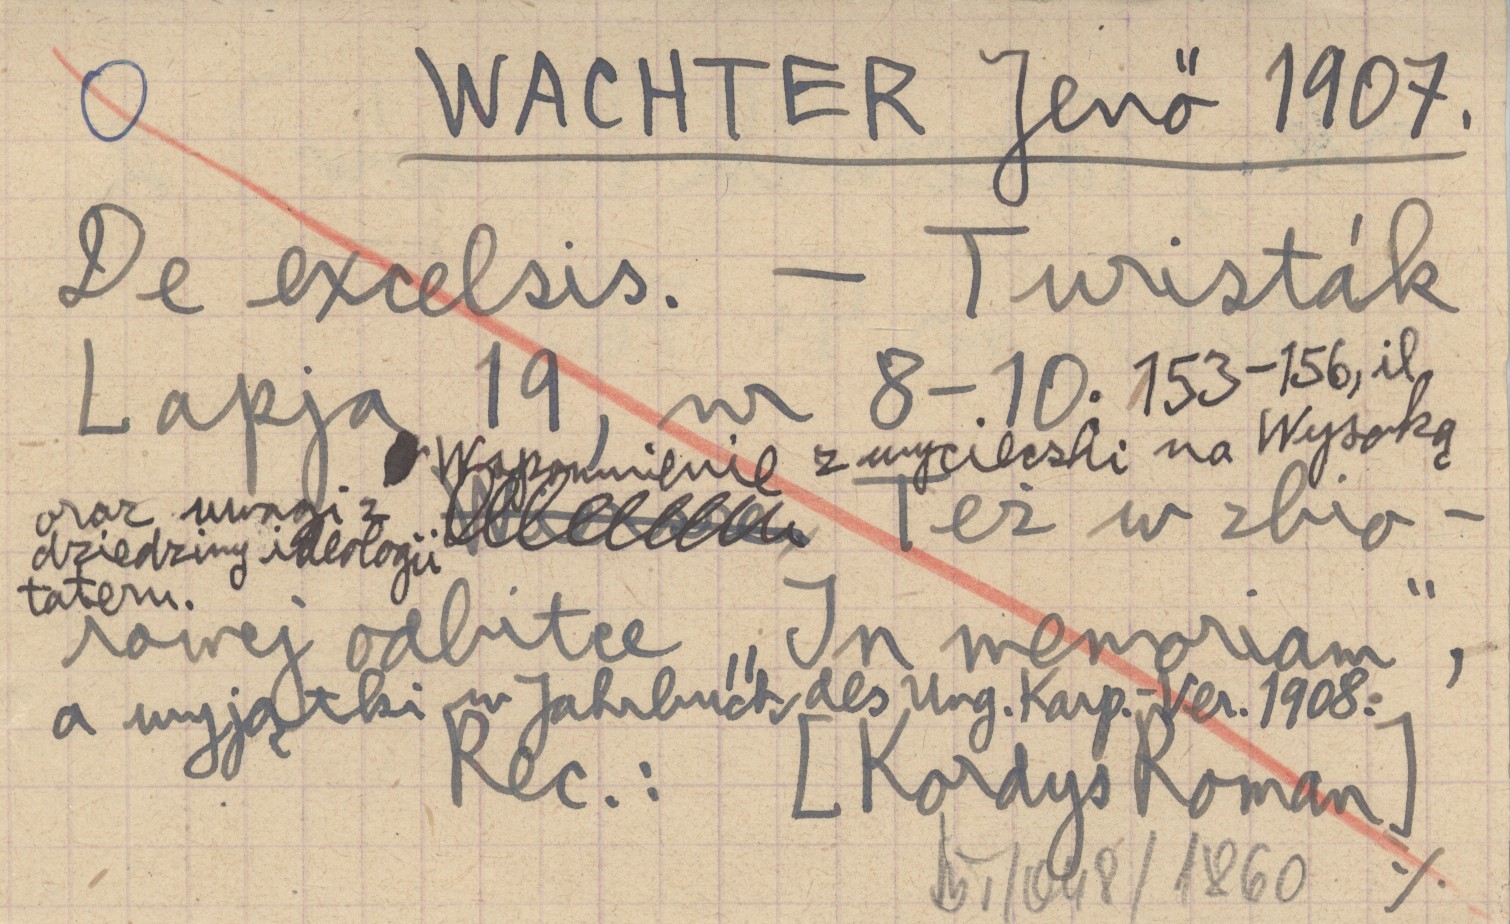 WACHTER Jenö 1907.
De excelsis. — Turisták
Lapja 19, nr 8–10: 153–156, il.
Wspomnienie z wycieczki na Wysoką
oraz uwagi z
dziedziny ideologii
tatern.
Też w zbio-
rowej odbitce „In memoriam",
a wyjątki w Jahrbuch des Ung. Karp.-Ver. 1908.
Rec.: [Kordys Roman]
/048/1860 ./.